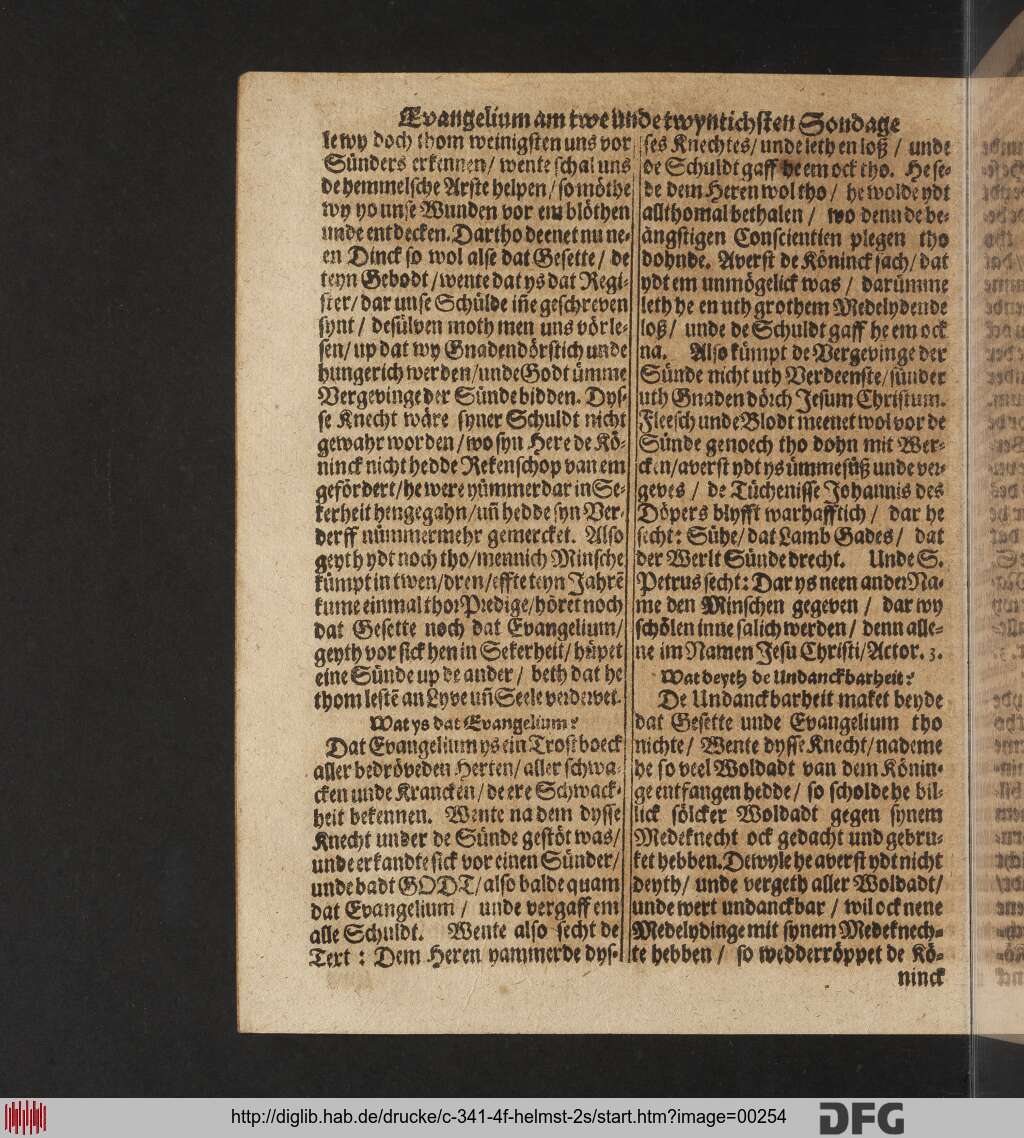 Evangelium am twe unde twyntichsten Sondage
le wy doch thom weinigsten uns vor
Sünders erkennen/ wente schal uns
de hemmelsche Arste helpen/ so möthe
wy yo unse Wunden vor em blöthen
unde entdecken. Dartho deenet nu ne-
en Dinck so wol alse dat Gesette/ de
teyn Gebodt/ wente dat ys dat Regi-
ster/ dar unse Schülde iñe geschreven
synt/ desülven moth men uns vörle-
sen/ up dat wy Gnadendörstich unde
hungerich werden/ unde Godt ümme
Vergevinge der Sünde bidden. Dys-
se Knecht wäre syner Schuldt nicht
gewahr worden/ wo syn Here de Kö-
ninck nicht hedde Rekenschop van em
gefördert/ he were yümmerdar in Se-
kerheit hengegahn/ uñ hedde syn Ver-
derff nümmermehr gemercket. Also
geyth ydt noch tho/ mennich Minsche
kümpt in twen/ dren/ effte teyn Jahrē
kume einmal thor Predige/ höret noch
dat Gesette noch dat Evangelium/
geyth vor sick hen in Sekerheit/ hüpet
eine Sünde up de ander/ beth dat he
thom lestē an Lyve uñ Seele verdervet.
Wat ys dat Evangelium?
Dat Evangelium ys ein Trostboeck
aller bedröveden Herten/ aller schwa-
cken unde Krancken/ de ere Schwack-
heit bekennen. Wente na dem dysse
Knecht under de Sünde gestöt was/
unde erkandte sick vor einen Sünder/
unde badt GODT/ also balde quam
dat Evangelium/ unde vergaff em
alle Schuldt. Wente also secht de
Text: Dem Heren yammerde dys-
ses Knechtes/ unde leth en loß/ unde
de Schuldt gaff he em ock tho. He se-
de dem Heren wol tho/ he wolde ydt
allthomal bethalen/ wo denn de be-
ängstigen Conscientien plegen tho
dohnde. Averst de Köninck sach/ dat
ydt em unmögelick was/ darümme
leth he en uth grothem Medelydende
loß/ unde de Schuldt gaff he em ock
na. Also kümpt de Vergevinge der
Sünde nicht uth Verdeenste/ sünder
uth Gnaden dörch Jesum Christum.
Fleesch unde Blodt meenet wol vor de
Sünde genoech tho dohn mit Wer-
cken/ averst ydt ys ümmesüß unde ver-
geves/ de Tüchenisse Johannis des
Döpers blyfft warhafftich/ dar he
secht: Sühe/ dat Lamb Gades/ dat
der Werlt Sünde drecht. Unde S.
Petrus secht: Dar ys neen ander Na-
me den Minschen gegeven/ dar wy
schölen inne salich werden/ denn alle-
ne im Namen Jesu Christi/ Actor. 3.
Wat deyth de Undanckbarheit?
De Undanckbarheit maket beyde
dat Gesette unde Evangelium tho
nichte/ Wente dysse Knecht/ nademe
he so veel Woldadt van dem Könin-
ge entfangen hedde/ so scholde he bil-
lick sölcker Woldadt gegen synem
Medeknecht ock gedacht und gebru-
ket hebben. Dewyle he averst ydt nicht
deyth/ unde vergeth aller Woldadt/
unde wert undanckbar/ wil ock nene
Medelydinge mit synem Medeknech-
te hebben/ so wedderröppet de Kö-
ninck
http://diglib.hab.de/drucke/c-341-4f-helmst-2s/start.htm?image=00254
DFG